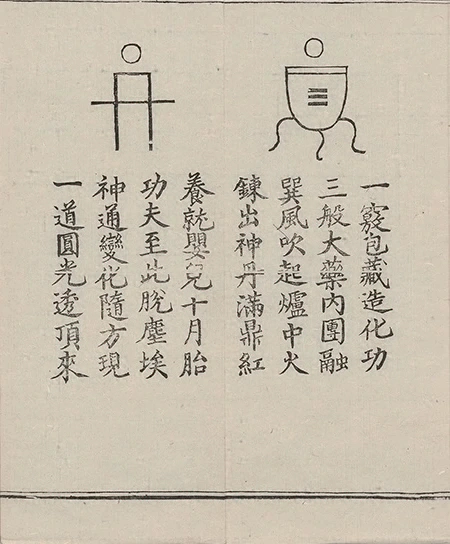 一竅包藏造化功
三般大藥內團融
巽風吹起爐中火
鍊出神丹滿鼎紅
丹
養就嬰兒十月胎
功夫至此脫塵埃
神通變化隨方現
一道圓光透頂來